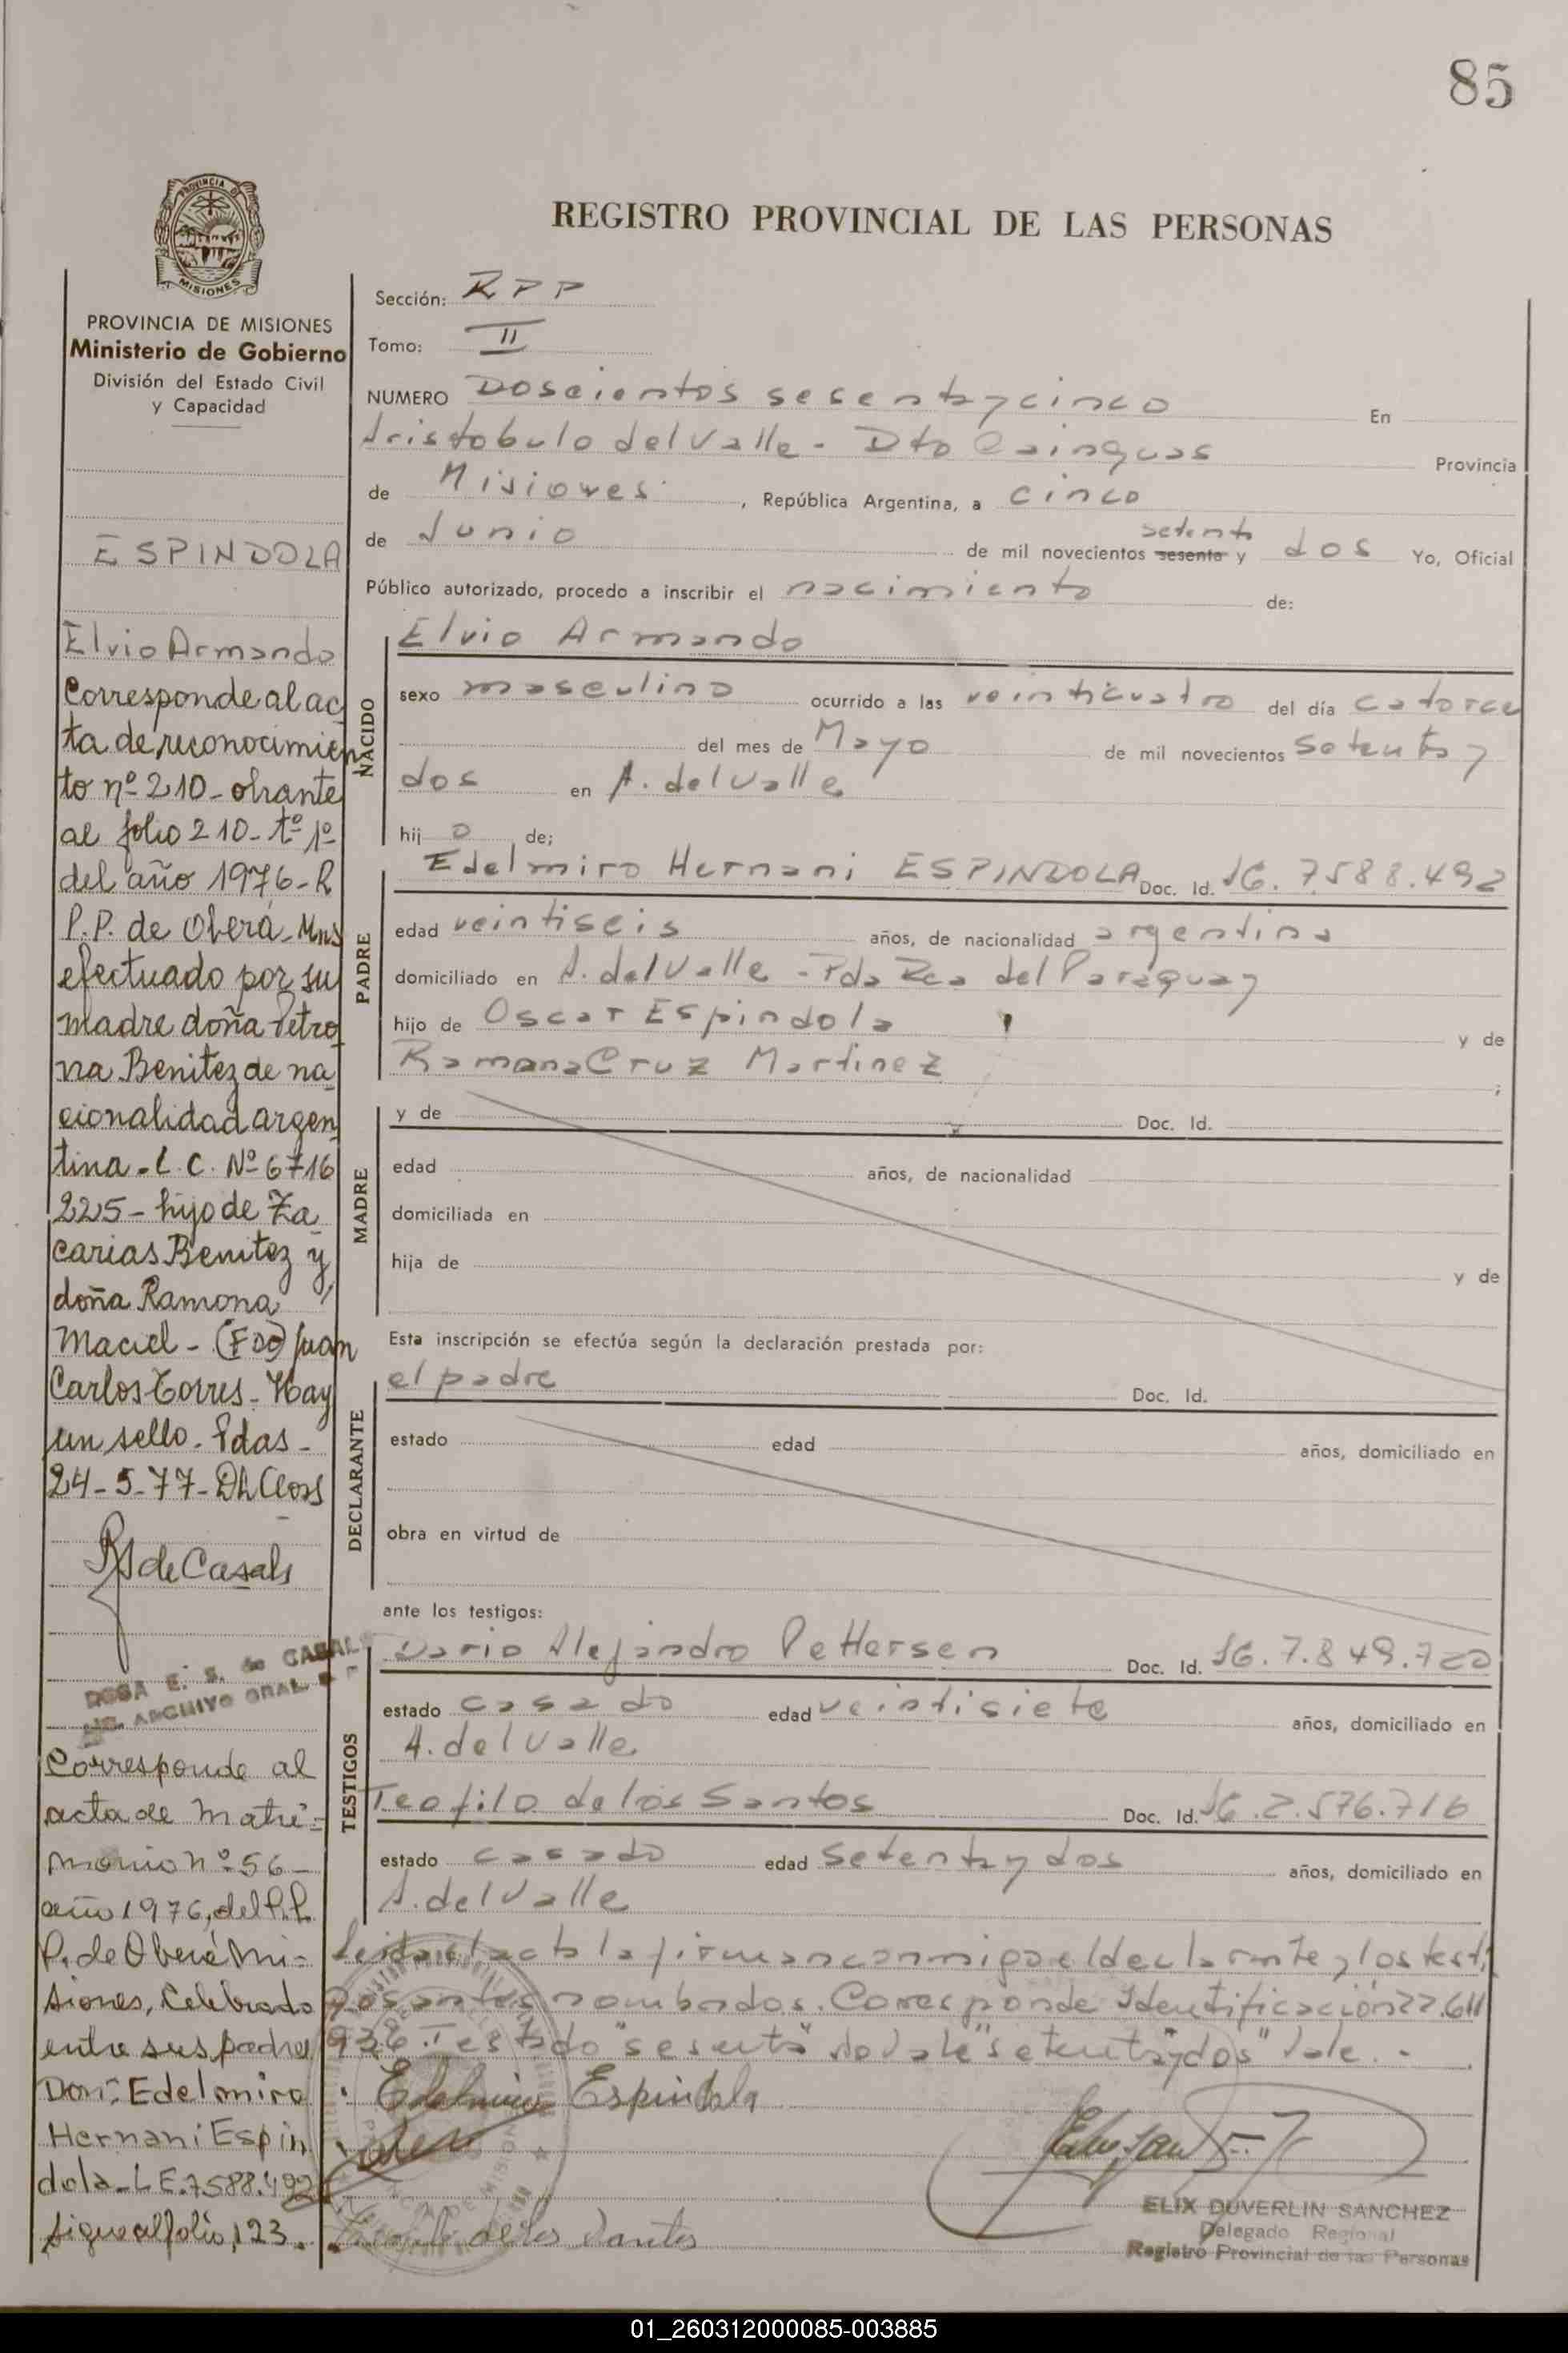 85
PROVINCIA DE
MISIONES
PROVINCIA DE MISIONES
Ministerio de Gobierno
División del Estado Civil
y Capacidad
ESPINDOLA
Elvio Armando
Corresponde al ac
ta de reconocimien
to nº 210 - obrante
al folio 210 - tº 1º
del año 1976 - R
P.P. de Oberá - Mns
efectuado por su
madre doña Petro
na Benitez de na
cionalidad argen
tina - L.C. Nº 6716
225 - hijo de Za
carias Benitez y
doña Ramona
Maciel - (Fdo) Juan
Carlos Torres - Hay
un sello - Pdas -
24-5-77 -
de Casals
ROSA E. S. de CASALS
ARCHIVO GRAL.
Corresponde al
acta de Matri=
monio nº 56 -
año 1976, del R.P.
P. de Oberá Mi=
siones, Celebrado
entre sus padres
Don: Edelmiro
Hernani Espin
dola - L E. 7.588.492
sigue al folio, 123.
REGISTRO PROVINCIAL DE LAS PERSONAS
Sección: RPP
Tomo: II
NUMERO Doscientos sesentaycinco En
Aristobulo del Valle - Dto Cainguas Provincia
de Misiones, República Argentina, a cinco
de Junio de mil novecientos sesenta setenta y dos Yo, Oficial
Público autorizado, procedo a inscribir el nacimiento de:
NACIDO
Elvio Armando
sexo masculino ocurrido a las veinticuatro del día catorce
del mes de Mayo de mil novecientos setenta y
dos en A. del Valle
hij o de;
PADRE
Edelmiro Hernani ESPINDOLA Doc. Id. 16. 7.588.492
edad veintiseis años, de nacionalidad argentina
domiciliado en A. del Valle - Pda Rca del Paraguay
hijo de Oscar Espindola y de
Ramona Cruz Martinez ;
MADRE
y de Doc. Id.
edad años, de nacionalidad
domiciliada en
hija de y de
Esta inscripción se efectúa según la declaración prestada por:
DECLARANTE
el padre Doc. Id.
estado edad años, domiciliado en
obra en virtud de
ante los testigos:
TESTIGOS
Dario Alejandro Pettersen Doc. Id. 16. 7.849.720
estado casado edad veintisiete años, domiciliado en
A. del Valle
Teofilo de los Santos Doc. Id. 16. 2.576.716
estado casado edad setentaydos años, domiciliado en
A. del Valle
Leida el acta la firman conmigo el declarante y los testi
gos antes nombrados. Corresponde Identificación 22.611
936. Testado "sesenta" no vale "setentaydos" Vale. -
Edelmiro Espindola
de los Santos
ELIX DUVERLIN SANCHEZ
Delegado Regional
Registro Provincial de las Personas
01_260312000085-003885